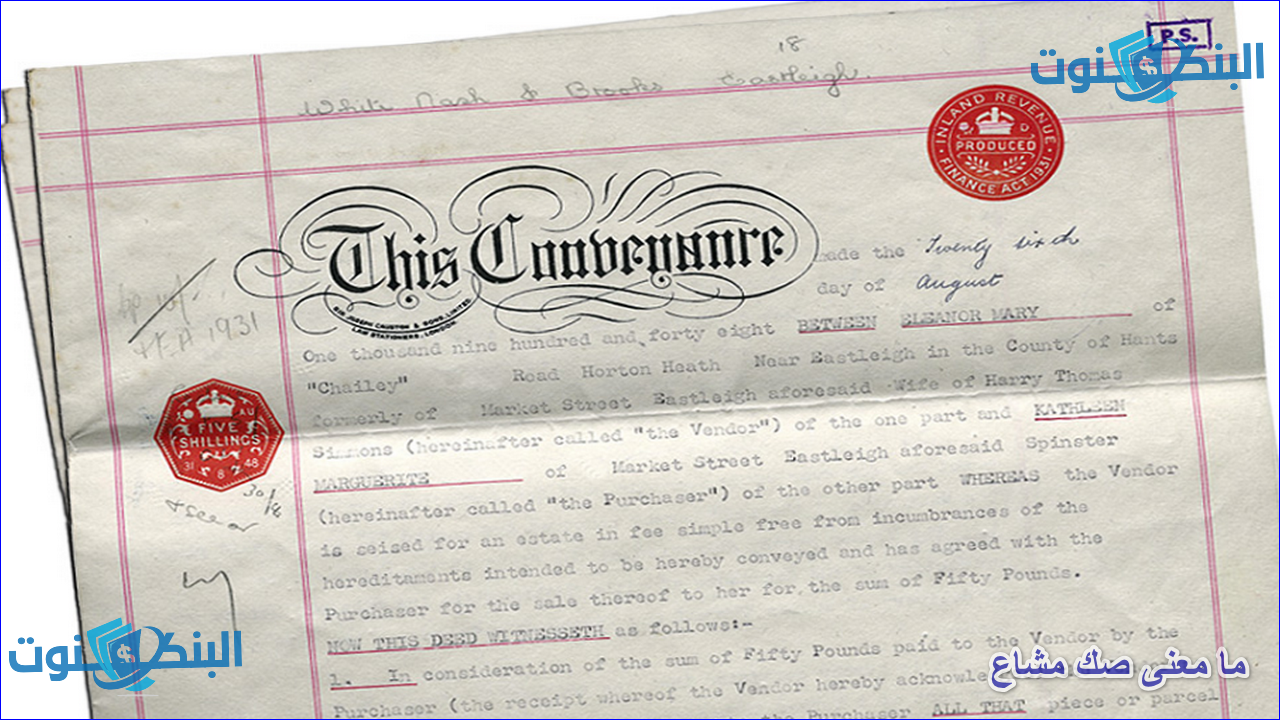 18
P.S.
البنكنوت
White Nash & Brooks Eastleigh.
INLAND REVENUE
PRODUCED
FINANCE ACT 1931
This Conveyance made the Twenty sixth
day of August
SIR JOSEPH CAUSTON & SONS, LIMITED
LAW STATIONERS, LONDON.
1931
One thousand nine hundred and forty eight BETWEEN ELEANOR MARY of
"Chailey" Road Horton Heath Near Eastleigh in the County of Hants
formerly of Market Street Eastleigh aforesaid Wife of Harry Thomas
Simmons (hereinafter called "the Vendor") of the one part and KATHLEEN
MARGUERITE of Market Street Eastleigh aforesaid Spinster
AU
FIVE
SHILLINGS
31 8 48
30/8
(hereinafter called "the Purchaser") of the other part WHEREAS the Vendor
is seised for an estate in fee simple free from incumbrances of the
hereditaments intended to be hereby conveyed and has agreed with the
Purchaser for the sale thereof to her for the sum of Fifty Pounds.
NOW THIS DEED WITNESSETH as follows:-
1. In consideration of the sum of Fifty Pounds paid to the Vendor by the
Purchaser (the receipt whereof the Vendor hereby
the Purchaser ALL THAT piece or parcel
البنكنوت
ما معنى صك مشاع